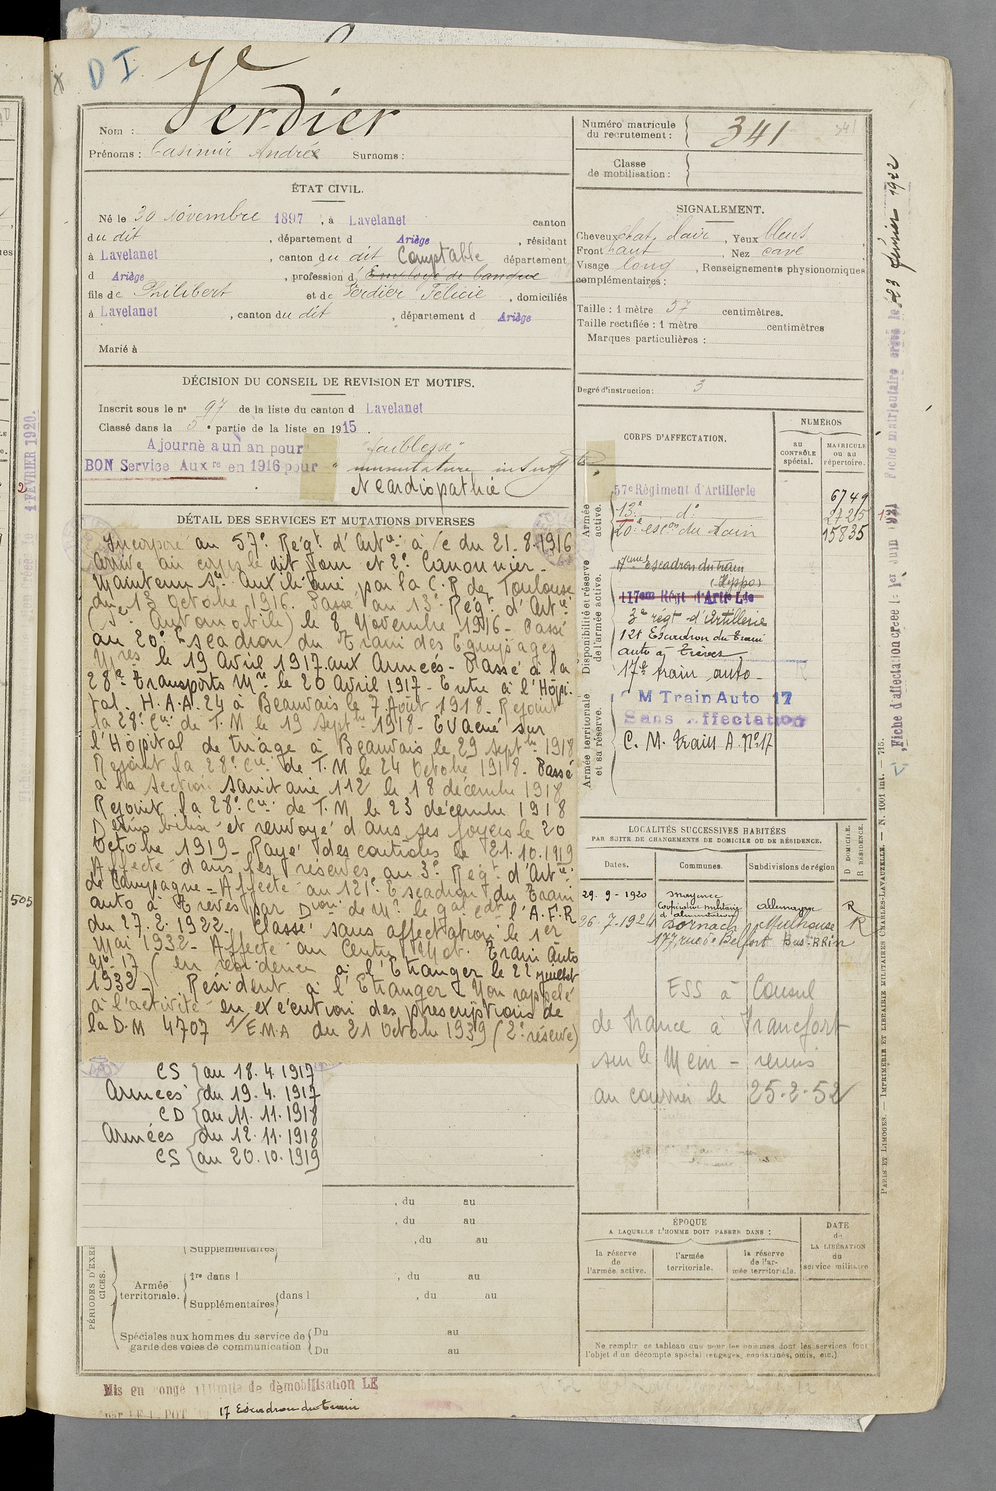 D I
Verdier
Nom :
Prénoms : Casimir André Surnoms :
Numéro matricule du recrutement : 341
341
Classe de mobilisation :
ÉTAT CIVIL.
Né le 30 Novembre 1897, à Lavelanet canton
du dit, département d Ariège, résidant
à Lavelanet, canton du dit Comptable département
d Ariège, profession d' Employé de banque
fils de Philibert et de Verdier Félicie, domiciliés
à Lavelanet, canton du dit, département d Ariège
Marié à
SIGNALEMENT.
Cheveux chat. clair, Yeux bleus
Front haut Nez cave
Visage long, Renseignements physionomiques
complémentaires :
Taille : 1 mètre 57 centimètres.
Taille rectifiée : 1 mètre centimètres
Marques particulières :
Degré d'instruction : 3
DÉCISION DU CONSEIL DE REVISION ET MOTIFS.
Inscrit sous le n° 97 de la liste du canton d Lavelanet
Classé dans la 5e partie de la liste en 1915.
Ajourné à un an pour "faiblesse"
BON Service Auxre en 1916 pour
Neardiopathie
DÉTAIL DES SERVICES ET MUTATIONS DIVERSES
Incorporé au 57e Régt d'Artie à /c du 21.8.1916
Arrivé au corps le dit jour et 2e Canonnier.
Maintenu Sce Auxiliaire par la C.R de Toulouse
du 13 octobre 1916. Passé au 13e Régt d'Artie
automobile) le 8 Novembre 1916 - Passé
au 20e Escadron du Train des Equipages
Mres le 19 Avril 1917. aux Armées - Passé à la
28e Transports Mre le 20 Avril 1917 - Entré à l'Hôpi-
tal. H.A.A. 24 à Beauvais le 7 Août 1918. Rejoint
la 28e Cie de T.M le 19 septbre 1918 - Evacué sur
l'Hôpital de triage à Beauvais le 29 septbre 1918
Rejoint la 28e Cie de T.M le 24 Octobre 1918. Passé
à la section sanitaire 112 le 18 décembre 1918
Rejoint la 28e Cie de T.M le 23 décembre 1918
Démobilisé et renvoyé dans ses foyers le 20
Octobre 1919 - Rayé des contrôles le 21.10.1919
Affecté dans les réserves au 3e Régt d'Artie
de Campagne = Affecté au 121e Escadron du Train
auto à Trèves par Dion de Mr le Gal Cdt l'A.F.R
du 27.2.1922. Classé sans affectation le 1er
Mai 1932 - Affecté au Centre Mob. Train Auto
No 17 (en résidence à l'Etranger le 22 juillet
1932 - Résident à l'Etranger - Non rappelé
à l'activité en exécution des prescriptions de
la D.M 4707 1/EMA du 21 Octobre 1939 (2e réserve)
CS { au 18.4.1917
Armées { du 19.4.1917
CD { au 11.11.1918
Armées { du 12.11.1918
CS { au 20.10.1919
, du au
, du au
Supplémentaires , du au
PÉRIODES D'EXERCICES.
Armée territoriale.
1re dans l , du au
Supplémentaires dans l , du au
Spéciales aux hommes du service de garde des voies de communication
Du au
Du au
CORPS D'AFFECTATION.
NUMÉROS
au CONTRÔLE spécial.
MATRICULE ou au répertoire.
Armée active.
57e Régiment d'Artillerie 6749
13e do 2725
20e escon du train 15835
Disponibilité et réserve de l'armée active.
17eme Escadron du train
(Hippo)
117em Régt d'Artie Lde
3e régt d'Artillerie
121 Escadron du Train
auto à Trèves
17e train auto -
Armée territoriale et sa réserve.
C M Train Auto 17
Sans Affectation
C. M. Train A. No 17
LOCALITÉS SUCCESSIVES HABITÉES
PAR SUITE DE CHANGEMENTS DE DOMICILE OU DE RÉSIDENCE.
Dates. Communes. Subdivisions de région
D DOMICILE. R RÉSIDENCE.
29.9-1920 Mayence Allemagne R
Coopération militaire d'alimentation
26.7.1924 Dornach Mulhouse R
177 rue de Belfort Haut-Rhin
ESS à Consul
de France à Francfort
sur le Mein - remis
au courrier le 25-2-52
ÉPOQUE
A LAQUELLE L'HOMME DOIT PASSER DANS :
la réserve de l'armée active.
l'armée territoriale.
la réserve de l'armée territoriale.
DATE de LA LIBÉRATION du service militaire
Ne remplir ce tableau que pour les hommes dont les services font
l'objet d'un décompte spécial (engagés, condamnés, omis, etc.)
Mis en congé illimité de démobilisation LE
17 Escadron du train
Fiche d'affectation créée le 1er Juin 1921 Fiche matriculaire créée le 23 février 1922
PARIS ET LIMOGES. — IMPRIMERIE ET LIBRAIRIE MILITAIRES CHARLES-LAVAUZELLE. — N. 1001 int. — 715.
4 FÉVRIER 1920.
505